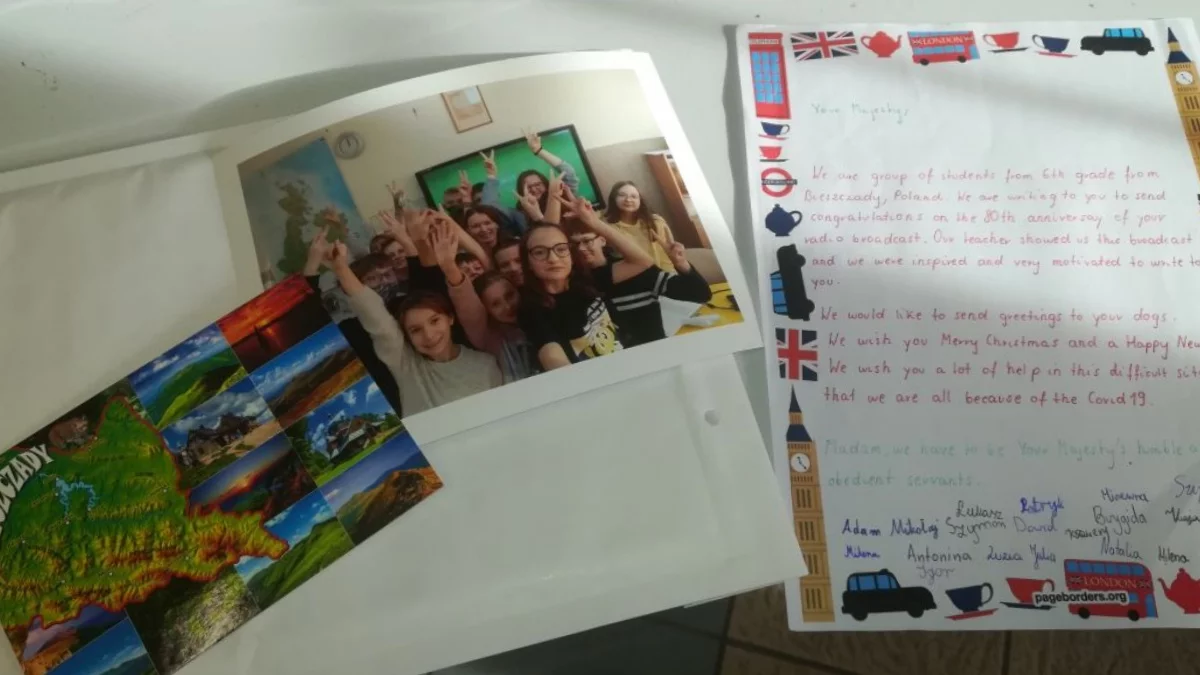 SZCZADY
LONDON
Your Majesty,
We are group of students from 6th grade from
Bieszczady, Poland. We are writing to you to send
congratulations on the 80th anniversay of your
radio broadcast. Our teacher showed us this broadcast
and we were inspired and very motivated to write to
you.
We would like to send greetings to your dogs.
We wish you Merry Christmas and a Happy New
We wish you a lot of help in this difficult
that we are all because of the Covid 19.
Madam, we have to be Your Majesty's humble
obedient servants.
Łukasz Patryk Minewra
Adam Mikołaj Szymon Dawid Ksawery Brygida
Milena Antonina Zuzia Julia Natalia Milena
Igor
LONDON
pageborders.org